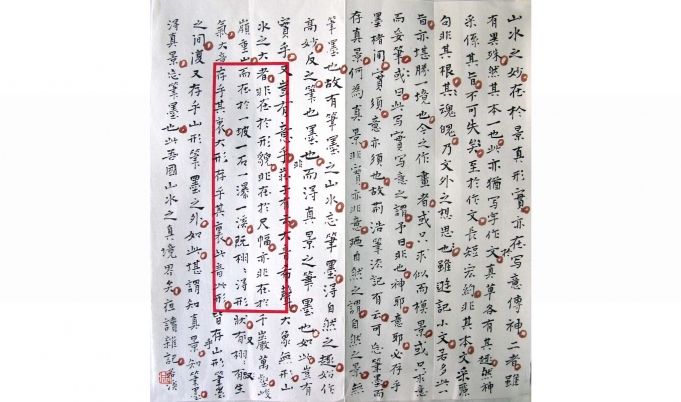 山水之妙在於景真形實亦在写意傳神二者雖
有異殊然其本一也此亦猶写字作文真草各有其趣然神
采係其旨不可失矣至於作文長短宏約非其本文采麗
句非其根其魂魄乃文外之想思也雖遊記小文若多此一
旨亦堪勝一境也今之作畫者或只求似而模景或只尋意
而妄筆或曰此写實写意之謂乎曰非也神耶意耶必存乎
墨楮間實須意亦須也故荊浩筆法記有云可忘筆墨而
存真景何為真景非實亦非意迺自然之謂自然之景無
筆墨也故有筆墨之山水忘筆墨得自然之趣始作
高妙反之筆也墨也非而得真景之筆墨也如此豈有
實乎又豈有意乎莊子有云大音希聲大象無形山
水之大者非在於形貌非在於尺幅亦非在於千巖萬壑峻
嶺重山而在於一坡一石一瀑一溪既栩栩得形状又栩栩有生
氣大音存乎其裏大形存乎其裏此音此形皆存乎山形筆墨
之間復又存乎山形筆墨之外如此堪謂知真景知筆墨
得真景忘筆墨也此吾國山水之真境界矣夜讀雜記